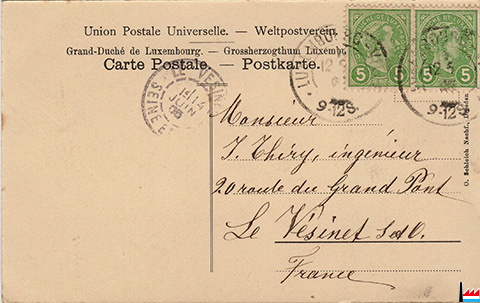 Union Postale Universelle. — Weltpostverein.
Grand-Duché de Luxembourg. — Grossherzogthum Luxemb
Carte Postale. — Postkarte.
5 5 5 5
LE VÉSINET
14
JUIN
06
9-12
9-12
Monsieur
J. Théry, ingénieur
20 route du Grand Pont
Le Vésinet S&O.
France
O. Schleich Nachf., Dresden